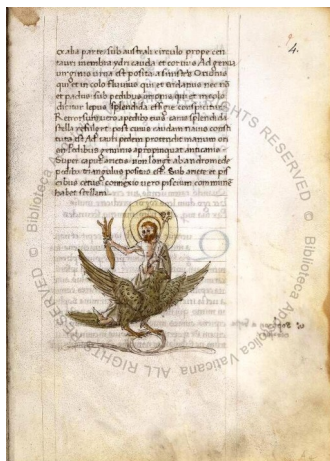 4.
ex alia parte sub australi circulo prope cen
tauri membra ydri cauda et corvus Ad genua
virginis urna est posita a sinistris Orionis
qui et
in celo fluvius qui et eridanus
et padus sub pedibus
dicitur lepus splendida est
Retrorsus vero a pedibus eius canis splendida
stella refulget post cuius caudam navis consti
tuta est Ad tauri pedem protendit manum ori
on pedibus geminis propinquat anticanis
Super caput arietis non longe ab andromede
pedibus triangulus positus est Sub ariete et pis
cibus cetus connexio vero piscium communem
habet stellam
© Biblioteca Apostolica Vaticana ALL RIGHTS RESERVED © Biblioteca Apostolica Vaticana ALL RIGHTS RESERVED ©